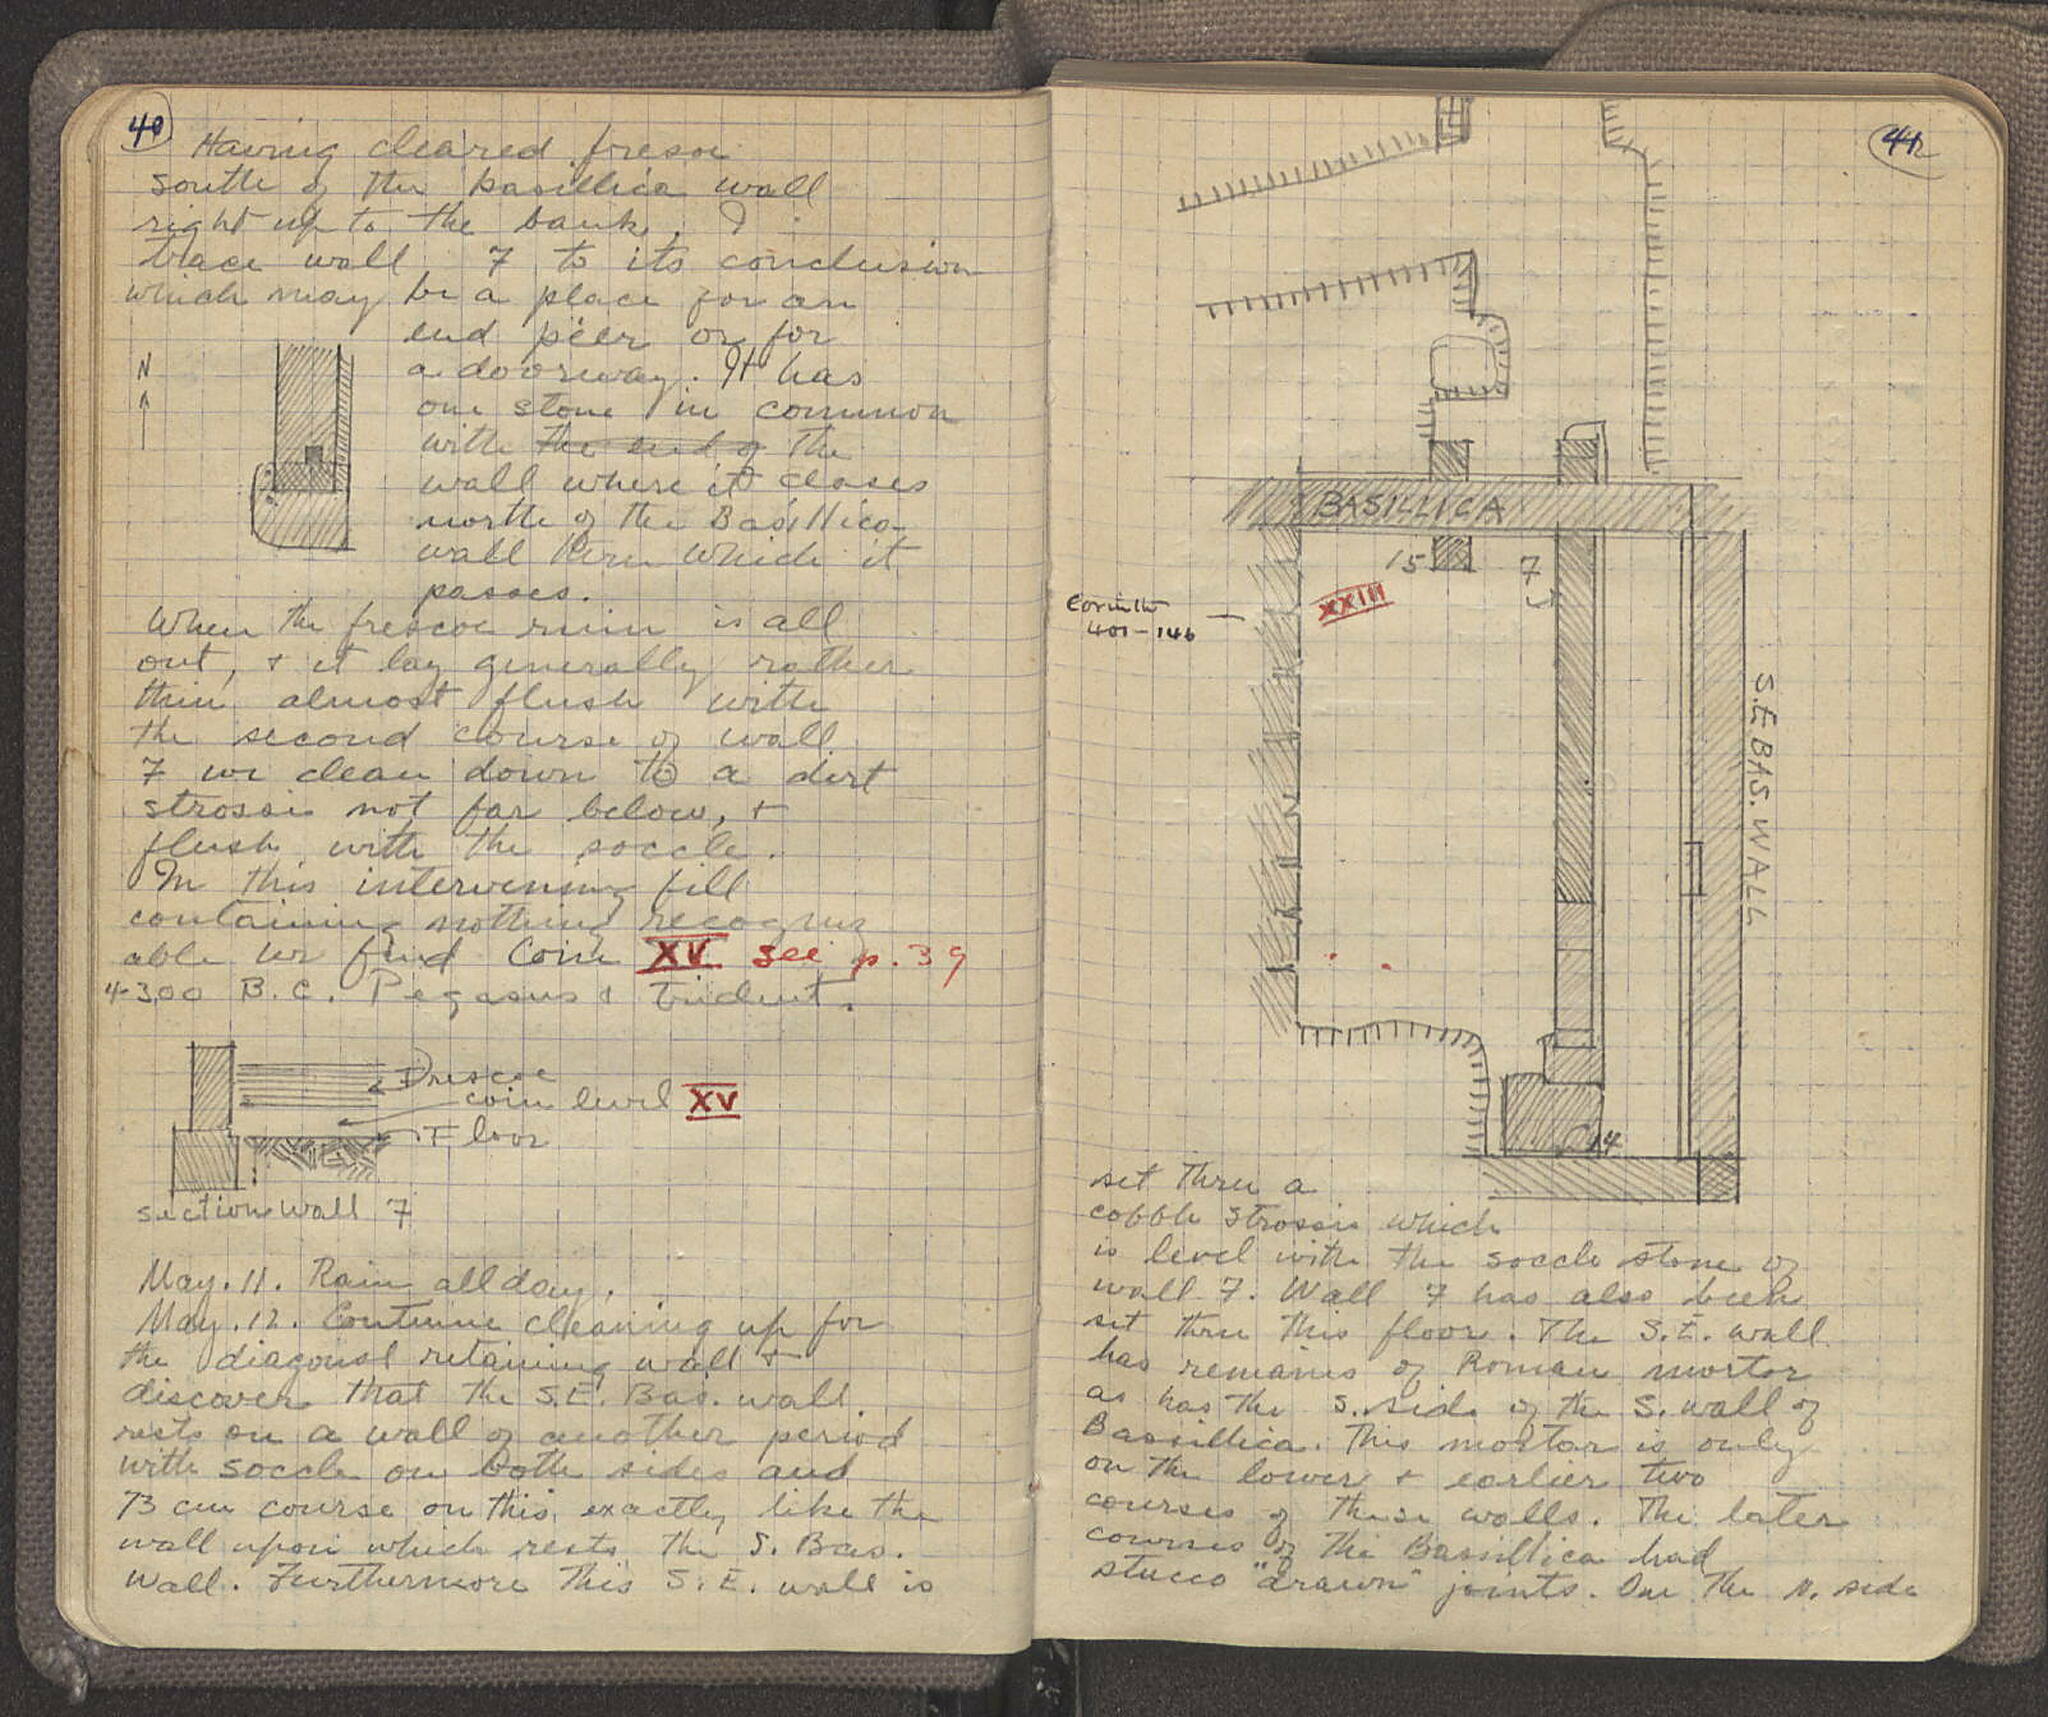 40
Having cleared fresco
south of the basillica wall
right up to the bank, I
trace wall 7 to its conclusion
which may be a place for an
end peer or for
a doorway. It has
one stone in common
with the end of the
wall where it ceases
north of the Basillica
wall thru which it
passes.
N
When the frescoe ruin is all
out, & it lay generally rather
thin almost flush with
the second course of wall
7 we clean down to a dirt
strosis not far below, &
flush with the soccle.
In this intervening fill
containing nothing recogniz
able we find Coin XV see p. 39
4-300 B.C. Pegasus & Trident.
Frescoe
coin level XV
Floor
section wall 7
May. 11. Rain all day.
May. 12. Continue cleaning up for
the diagonal retaining wall &
discover that the S.E. Bas. wall
rests on a wall of another period
with soccle on both sides and
73 cm course on this, exactly like the
wall upon which rests the S. Bas.
wall. Furthermore this S.E. wall is
BASILLICA
15
7
XXIII
Corinth
400-146
S.E BAS. WALL
14
set thru a
cobble strosis which
is level with the soccle stone of
wall 7. Wall 7 has also been
set thru this floor. The S.E. wall
has remains of Roman mortar
as has the S. side of the S. wall of
Bassillica. This mortar is only
on the lower & earlier two
courses of these walls. The later
courses of the Bassillica had
stucco "drawn" joints. On the N. side